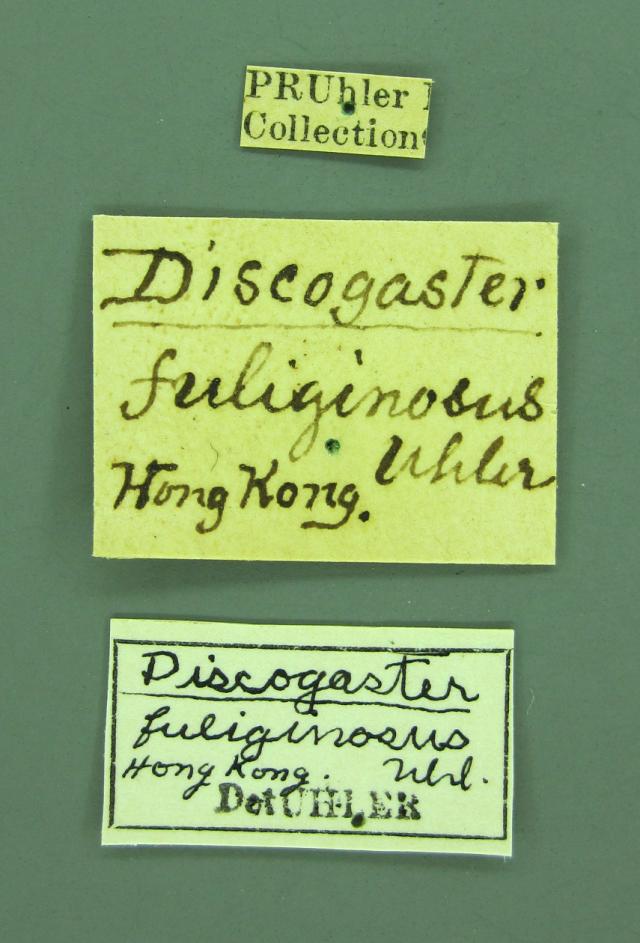 PRUhler
Collection
Discogaster
fuliginosus
Uhler
Hong Kong.
Discogaster
fuliginosus
Hong Kong. Uhl.
Det UHLER